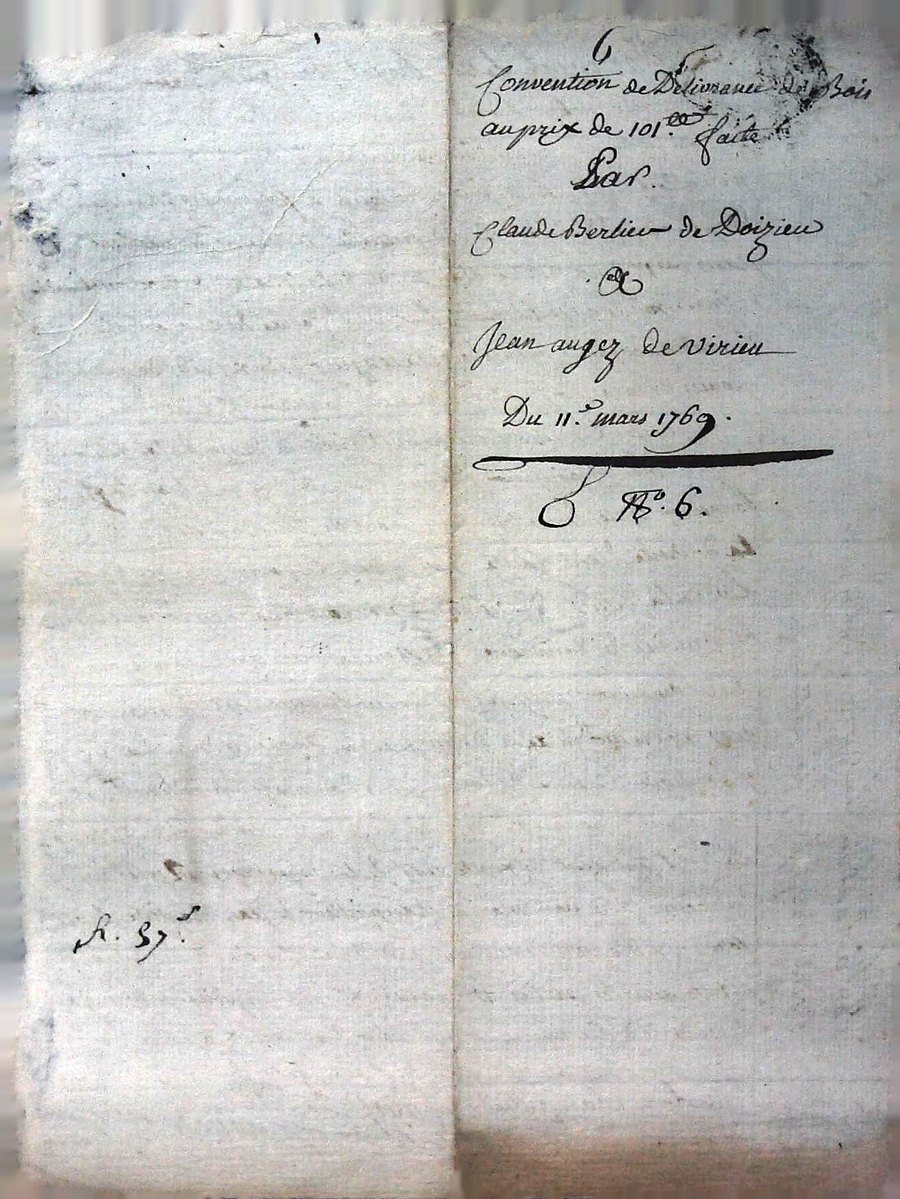 6
Convention de Délivrance de Bois
au prix de 101.ᵗᵗ faite
Par.
Claude Berlier de Doizieu
&
Jean augez de virieu
Du 11.ᵉ mars 1769.
N.º 6.
R. 37.ˢ